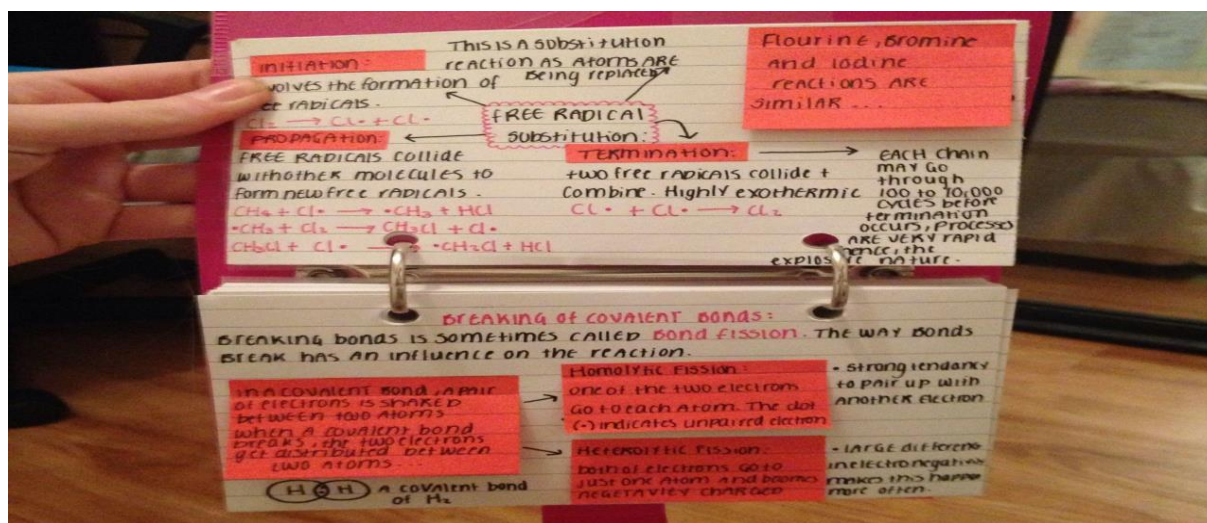 THIS IS A SUBSTITUTION
REACTION AS ATOMS ARE
BEING REPLACED
INITIATION:
INVOLVES THE FORMATION OF
FREE RADICALS.
Cl2 → Cl• + Cl•
FREE RADICAL
SUBSTITUTION:
Flourine, Bromine
and Iodine
reactions are
similar...
PROPAGATION:
FREE RADICALS COLLIDE
WITH OTHER MOLECULES TO
FORM NEW FREE RADICALS.
CH4 + Cl• → •CH3 + HCl
•CH3 + Cl2 → CH3Cl + Cl•
CH3Cl + Cl• → •CH2Cl + HCl
TERMINATION:
two free radicals collide +
combine. Highly exothermic
Cl• + Cl• → Cl2
EACH CHAIN
MAY GO
through
100 to 10,000
cycles before
termination
occurs, processes
ARE VERY RAPID
hence, the
explosive nature.
BREAKING OF COVALENT BONDS:
BREAKING BONDS IS SOMETIMES CALLED BOND FISSION. THE WAY BONDS
BREAK HAS AN INFLUENCE ON THE REACTION.
IN A COVALENT BOND, A PAIR
of electrons is shared
between two atoms
when a covalent bond
breaks, the two electrons
get distributed between
two atoms...
H H A covalent bond
of H2
Homolytic Fission:
one of the two electrons
Go to each atom. The dot
(•) indicates unpaired electron
- strong tendancy
to pair up with
another electron
Heterolytic Fission:
both of electrons go to
just one atom and
negetavley charged
- Large
in
makes this
more often.